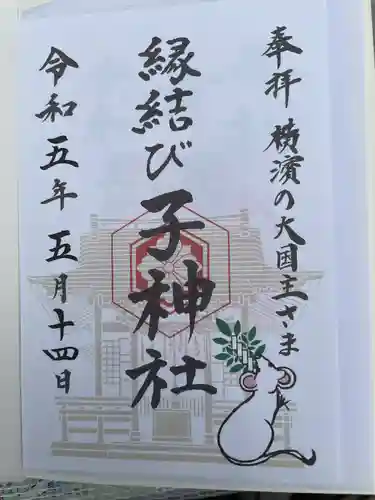 奉拝 横濱の大国主さま
縁結び
子神社
令和五年五月十四日